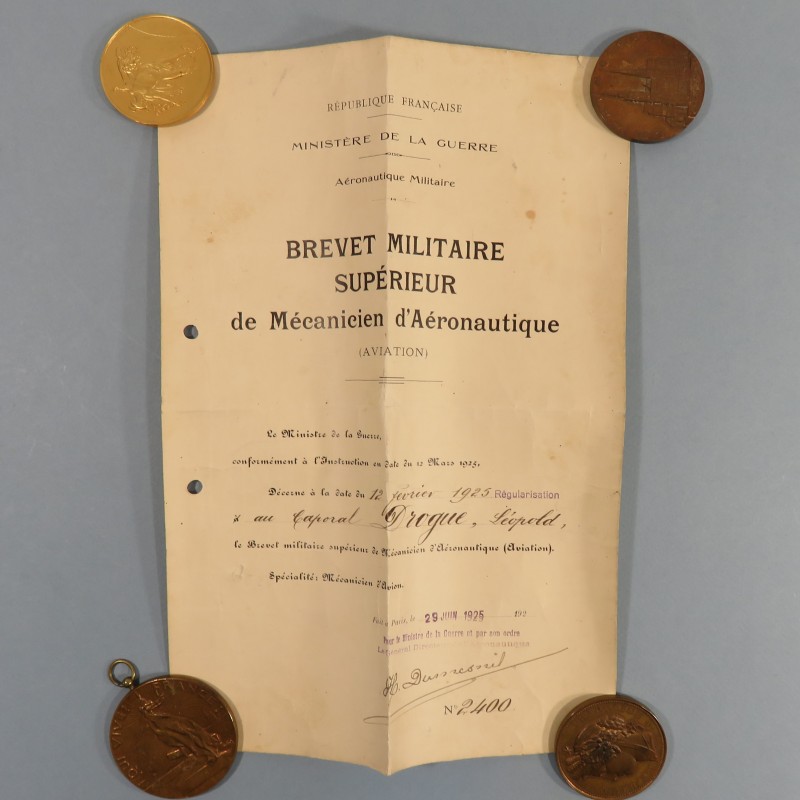 RÉPUBLIQUE FRANÇAISE
MINISTÈRE DE LA GUERRE
Aéronautique Militaire
BREVET MILITAIRE
SUPÉRIEUR
de Mécanicien d'Aéronautique
(AVIATION)
Le Ministre de la Guerre,
conformément à l'Instruction en date du 12 Mars 1925,
Décerne à la date du 12 février 1925 Régularisation
au Caporal Drogue, Léopold,
le Brevet militaire supérieur de Mécanicien d'Aéronautique (Aviation).
Spécialité: Mécanicien d'Avion.
Fait à Paris, le 29 JUIN 1925 192
Pour le Ministre de la Guerre et par son ordre
Le Général
H. Dumesnil
N° 2400
QUI VIVE